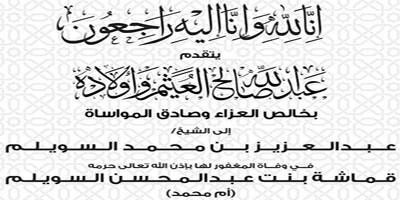 إنا لله وإنا إليه راجعون
يتقدم
عبدالله صالح العثيم وأولاده
بخالص العزاء وصادق المواساة
إلى الشيخ/
عبدالعزيز بن محمد السويلم
في وفاة المغفور لها بإذن الله تعالى حرمه
قماشة بنت عبدالمحسن السويلم
(أم محمد)